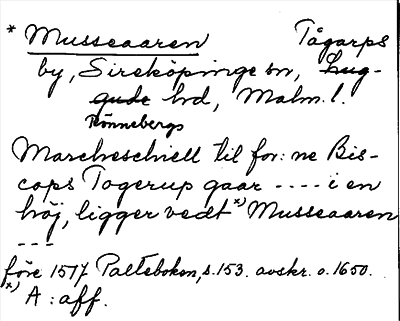 * Musseaaren Tågarps
by, Sireköpinge sn, Lug-
gude hd, Malm. l.
Rönnebergs
Marcheschiell til for: ne Bis-
cops Togerup gaar ---- i en
höj, ligger vedt *) Musseaaren
---
före 1577 Palteboken, s. 153. avskr. o. 1650.
*) A : aff.